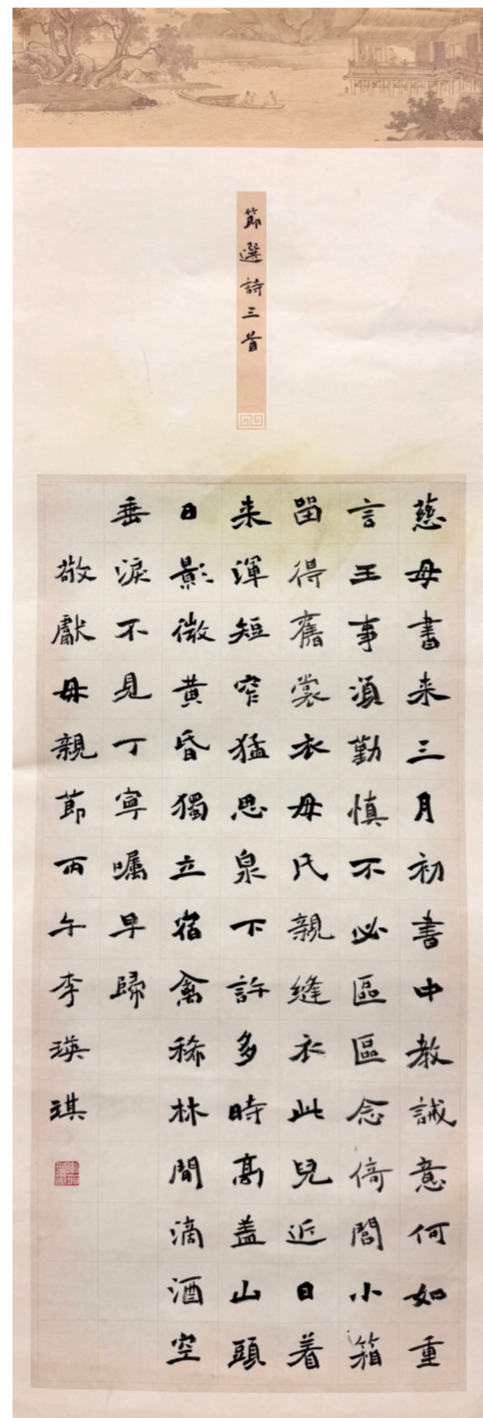 節選詩三首
慈母書来三月初書中教誡意何如重
言王事湏勤慎不必區區念倚閭小箱
留得舊裳衣母氏親縫衣此兒近日着
来渾短窄猛思泉下許多時高盖山頭
日影微黄昏獨立宿禽稀林間滴酒空
垂淚不見丁寧囑早歸
敬獻母親節丙午李瑛琪